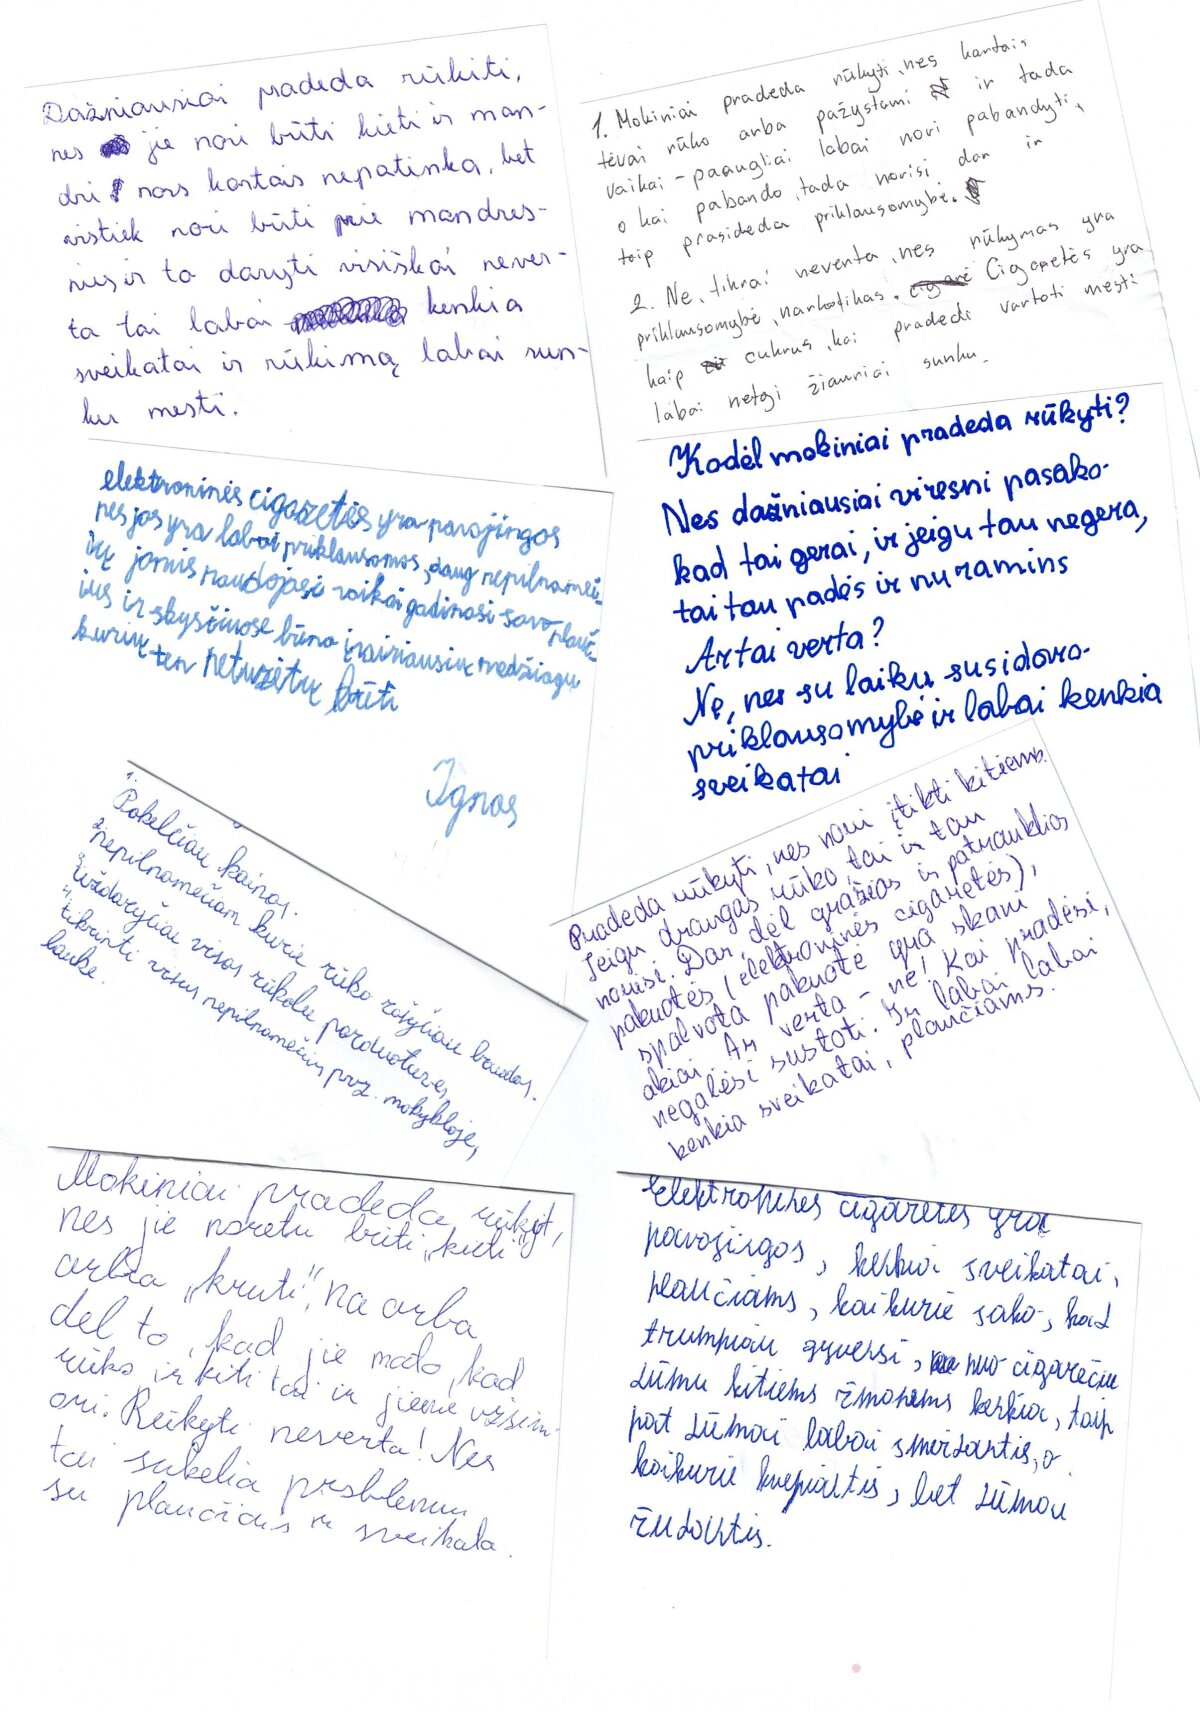 Dažniausiai pradeda rūkiti,
nes jie nori būti kieti ir man-
dri nors kartais nepatinka, bet
vistiek nori būti prie mandres-
nių ir ta daryti visiškai never-
ta tai labai kenkia
sveikatai ir rūkimą labai sun-
ku mesti.
1. Mokiniai pradeda rūkyti, nes kartais
tėvai rūko arba pažystami ir tada
vaikai - paaugliai labai nori pabandyti,
o kai pabando, tada norisi dar ir
taip prasideda priklausomybė.
2. Ne, tikrai neverta, nes rūkymas yra
priklausomybė, narkotikas. Cigaretės yra
kaip cukrus, kai pradedi vartoti mesti
labai netgi žiauriai sunku.
elektroninės cigaretės yra pavojingos
nes jos yra labai priklausomos, daug nepilnameč-
ių jomis naudojasi vaikai gadinasi savo plauč-
ius ir skysčiuose būna įvairiausių medžiagų
kurių ten neturėtų būti
Ignas
Kodėl mokiniai pradeda rūkyti?
Nes dažniausiai viresni pasako-
kad tai gerai, ir jeigu tau negera,
tai tau padės ir nuramins
Ar tai verta?
Ne, nes su laiku susidoro-
priklausomybė ir labai kenkia
sveikatai
1. Pakelčiau kainas.
2. nepilnamečiam kurie rūko rašyčiau baudas.
3. Uždaryčiau visas rūkalų parduotuves,
4. tikrinti visus nepilnamečius pvz. mokykloje,
lauke.
Pradeda rūkyti, nes nori įtikti kitiems.
Jeigu draugas rūko, tai ir tau
norisi. Dar, dėl gražios ir patrauklios
pakuotės (elektroninės cigaretės),
spalvota pakuotė yra skani
akiai. Ar verta - ne! Kai pradėsi,
negalėsi sustoti. Ir labai labai
kenkia sveikatai, plaučiams.
Mokiniai pradeda rūkyt,
nes jie noretu būti "kieti"
arba "kruti", na arba
dėl to, kad jie mato, kad
rūko ir kiti tai ir jiems užsim-
ori. Rūkyti neverta! Nes
tai sukelia problemų
su plaučiais ir sveikata.
Elektroninės cigaretės yra
pavojingos, kenkia sveikatai,
plaučiams, kaikurie sako, kad
trumpiau gyvensi, nuo cigarečiu
dūmu kitiems žmonems kenkia, taip
pat dūmai labai smirdantis, o
kaikurie kvepiantis, bet dūmai
žudantis.